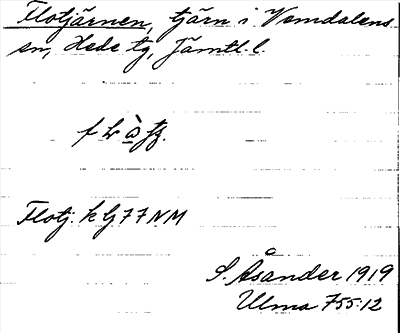 Flotjärnen, tjärn i Vemdalens
sn, Hede tg, Jämtl. l.
Flotj. k G77NM
S. Åsander 1919
Ulma 755:12